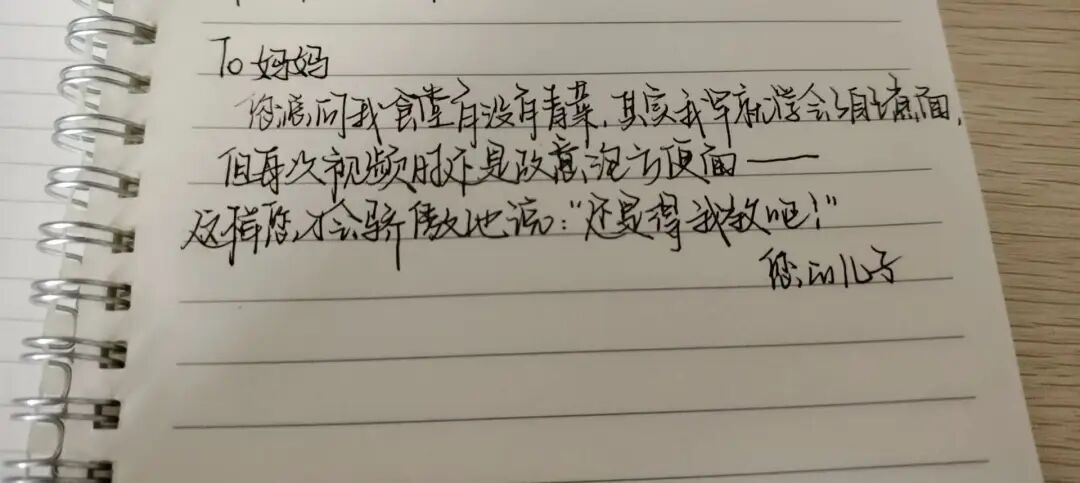 To 妈妈
您总问我食堂有没有青菜,其实我早就学会煮汤面,
但每次视频时还是故意泡方便面——
这样您才会骄傲地说:“还是得我教吧!”
您的儿子